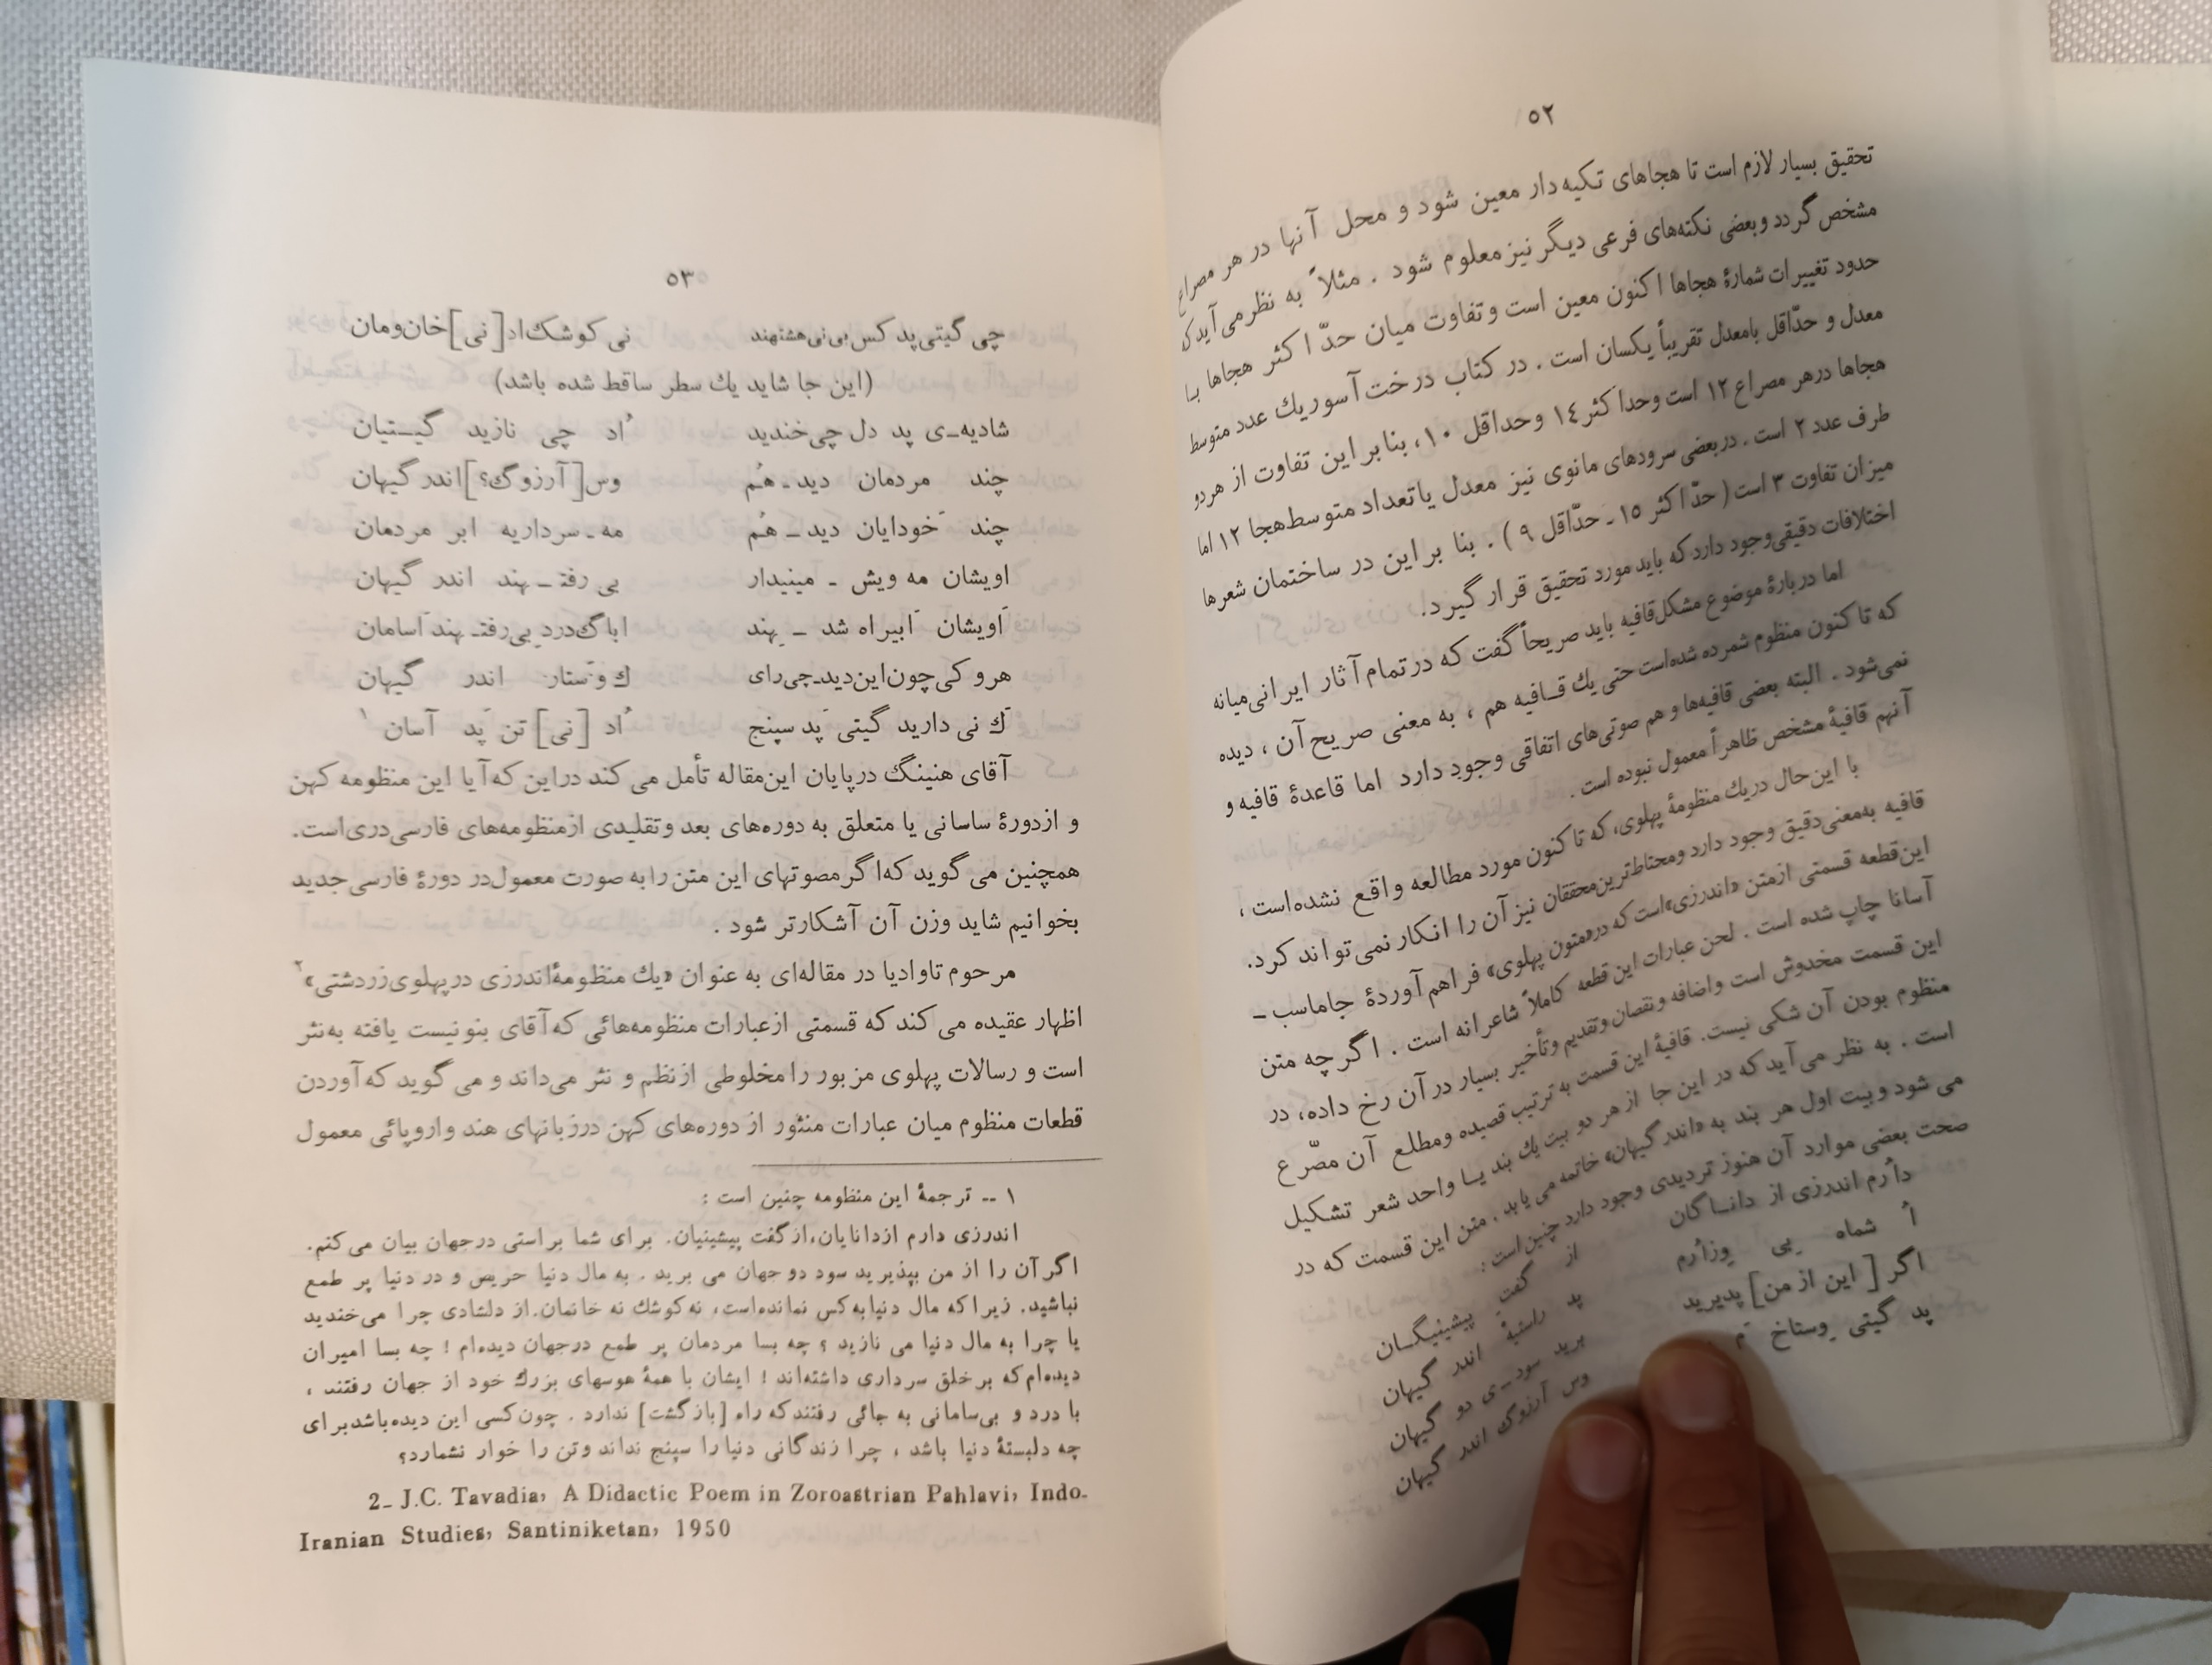 ۵۲
تحقیق بسیار لازم است تا هجاهای تکیه‌دار معین شود و محل آنها در هر مصراع
مشخص گردد و بعضی نکته‌های فرعی دیگر نیز معلوم شود . مثلاً به نظر می‌آید که
حدود تغییرات شمارهٔ هجاها اکنون معین است و تفاوت میان حدّ اکثر هجاها با
معدل و حدّاقل بامعدل تقریباً یکسان است . در کتاب درخت آسوریك عدد متوسط
هجاها درهر مصراع ۱۲ است وحداکثر ۱۴ وحداقل ۱۰، بنابراین تفاوت از هردو
طرف عدد ۲ است . دربعضی سرودهای مانوی نیز معدل یا تعداد متوسط هجا ۱۲ اما
میزان تفاوت ۳ است ( حدّ اکثر ۱۵ ـ حدّاقل ۹ ) . بنا بر این در ساختمان شعرها
اختلافات دقیقی وجود دارد که باید مورد تحقیق قرار گیرد.
اما دربارهٔ موضوع مشکل قافیه باید صریحاً گفت که در تمام آثار ایرانی میانه
که تا کنون منظوم شمرده شده‌است حتی یك قـافیه هم ، به معنی صریح آن ، دیده
نمی‌شود . البته بعضی قافیه‌ها و هم صوتی‌های اتفاقی وجود دارد اما قاعدهٔ قافیه و
آنهم قافیهٔ مشخص ظاهراً معمول نبوده است .
با این‌حال دریك منظومهٔ پهلوی، که تا کنون مورد مطالعه واقع نشده‌است ،
قافیه به‌معنی دقیق وجود دارد ومحتاط‌ترین محققان نیز آن را انکار نمی‌تواند کرد.
این قطعه قسمتی ازمتن «اندرزی» است که در «متون پهلوی» فراهم آوردهٔ جاماسب ـ
آسانا چاپ شده است . لحن عبارات این قطعه کاملاً شاعرانه است . اگر چه متن
این قسمت مخدوش است واضافه ونقصان وتقدیم وتأخیر بسیار در آن رخ داده، در
منظوم بودن آن شکی نیست. قافیهٔ این قسمت به ترتیب قصیده ومطلع آن مصّرع
است . به نظر می‌آید که در این جا از هر دو بیت یك بند یـا واحد شعر تشکیل
می شود وبیت اول هر بند به «اندر گیهان» خاتمه می یابد . متن این قسمت که در
صحت بعضی موارد آن هنوز تردیدی وجود دارد چنین است :
دارُم اندرزی از دانـاگان از گفت پیشینیگـان
اُ شماه بی وزارُم پد راستیهٔ اندر گیهان
اگر [ این از من] پدیرید برید سودـی دو گیهان
پد گیتی وستاخ م وس آرزوك اندر گیهان
۵۳
چی گیتی پد کس بی نی هشتهند نی کوشك اد [نی] خان‌ومان
(این جا شاید یك سطر ساقط شده باشد)
شادیه‌ـی پد دل چی خندید اُد چی نازید گیـتیان
چند مردمان دیدـ هُم وس [آرزوگ؟] اندر گیهان
چند خودایان دید ـ هُم مه ـ سرداریه ابر مردمان
اویشان مه ویش ـ مینیدار بی رفت ـ هند اندر گیهان
اَویشان اَبیراه شد ـ هند اباگ درد بی رفتـ هند اَسامان
هرو کی چون این دیدـچی رای ك وَستار اندر گیهان
كَ نی دارید گیتی پَد سپنج اُد [نی] تن پَد آسان ۱
آقای هنینگ درپایان این‌مقاله تأمل می کند دراین که آیا این منظومه کهن
و ازدورهٔ ساسانی یا متعلق به دوره‌های بعد وتقلیدی ازمنظومه‌های فارسی دری‌است.
همچنین می گوید که اگر مصوتهای این متن را به صورت معمول در دورهٔ فارسی جدید
بخوانیم شاید وزن آن آشکارتر شود .
مرحوم تاوادیا در مقاله‌ای به عنوان «یك منظومهٔ اندرزی در پهلوی زردشتی» ۲
اظهار عقیده می کند که قسمتی ازعبارات منظومه‌هائی که آقای بنونیست یافته به‌نثر
است و رسالات پهلوی مزبور را مخلوطی ازنظم و نثر می‌داند و می گوید که آوردن
قطعات منظوم میان عبارات منثور از دوره‌های کهن درزبانهای هند واروپائی معمول
۱ -- ترجمهٔ این منظومه چنین است :
اندرزی دارم ازدانایان، از گفت پیشینیان. برای شما براستی درجهان بیان می کنم.
اگر آن را از من بپذیرید سود دو جهان می برید . به مال دنیا حریص و در دنیا پر طمع
نباشید. زیرا که مال دنیا به کس نمانده‌است، نه کوشك نه خانمان. از دلشادی چرا می‌خندید
یا چرا به مال دنیا می نازید ؟ چه بسا مردمان پر طمع درجهان دیده‌ام ! چه بسا امیران
دیده‌ام که برخلق سرداری داشته‌اند ! ایشان با همهٔ هوسهای بزرگ خود از جهان رفتند ،
با درد و بی‌سامانی به جائی رفتند که راه [بازگشت] ندارد . چون کسی این دیده باشد برای
چه دلبستهٔ دنیا باشد ، چرا زندگانی دنیا را سپنج نداند وتن را خوار نشمارد؟
2_ J.C. Tavadia, A Didactic Poem in Zoroastrian Pahlavi, Indo-
Iranian Studies, Santiniketan, 1950